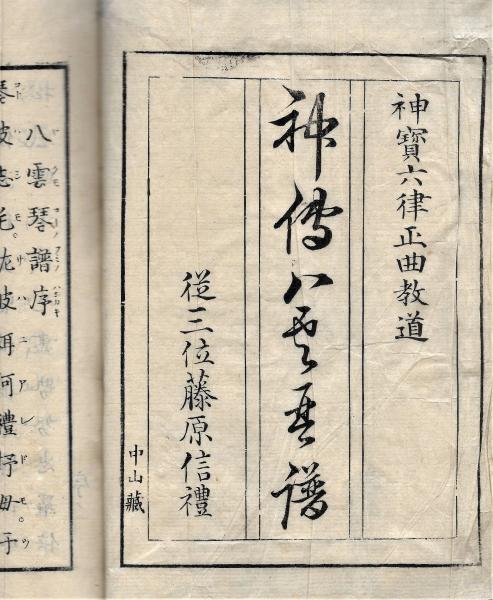 神寶六律正曲教道
神傳八雲琴譜
從三位藤原信禮
中山藏
八雲琴譜序
琴波志毛尨波洱阿禮抒毋于